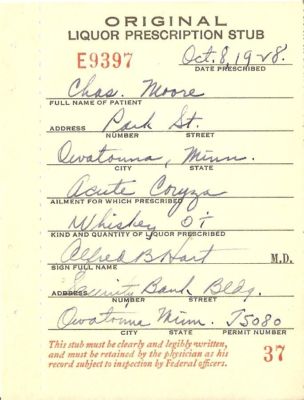 ORIGINAL
LIQUOR PRESCRIPTION STUB
E9397 Oct. 8, 1928.
DATE PRESCRIBED
Chas. Moore
FULL NAME OF PATIENT
ADDRESS Park St.
NUMBER STREET
Owatonna, Minn.
CITY STATE
Acute Coryza
AILMENT FOR WHICH PRESCRIBED
Whiskey O⁠ɨ
KIND AND QUANTITY OF LIQUOR PRESCRIBED
Alfred B Hart M.D.
SIGN FULL NAME
ADDRESS Security Bank Bldg.
NUMBER STREET
Owatonna Minn. J5080
CITY STATE PERMIT NUMBER
This stub must be clearly and legibly written,
and must be retained by the physician as his
record subject to inspection by Federal officers.
37